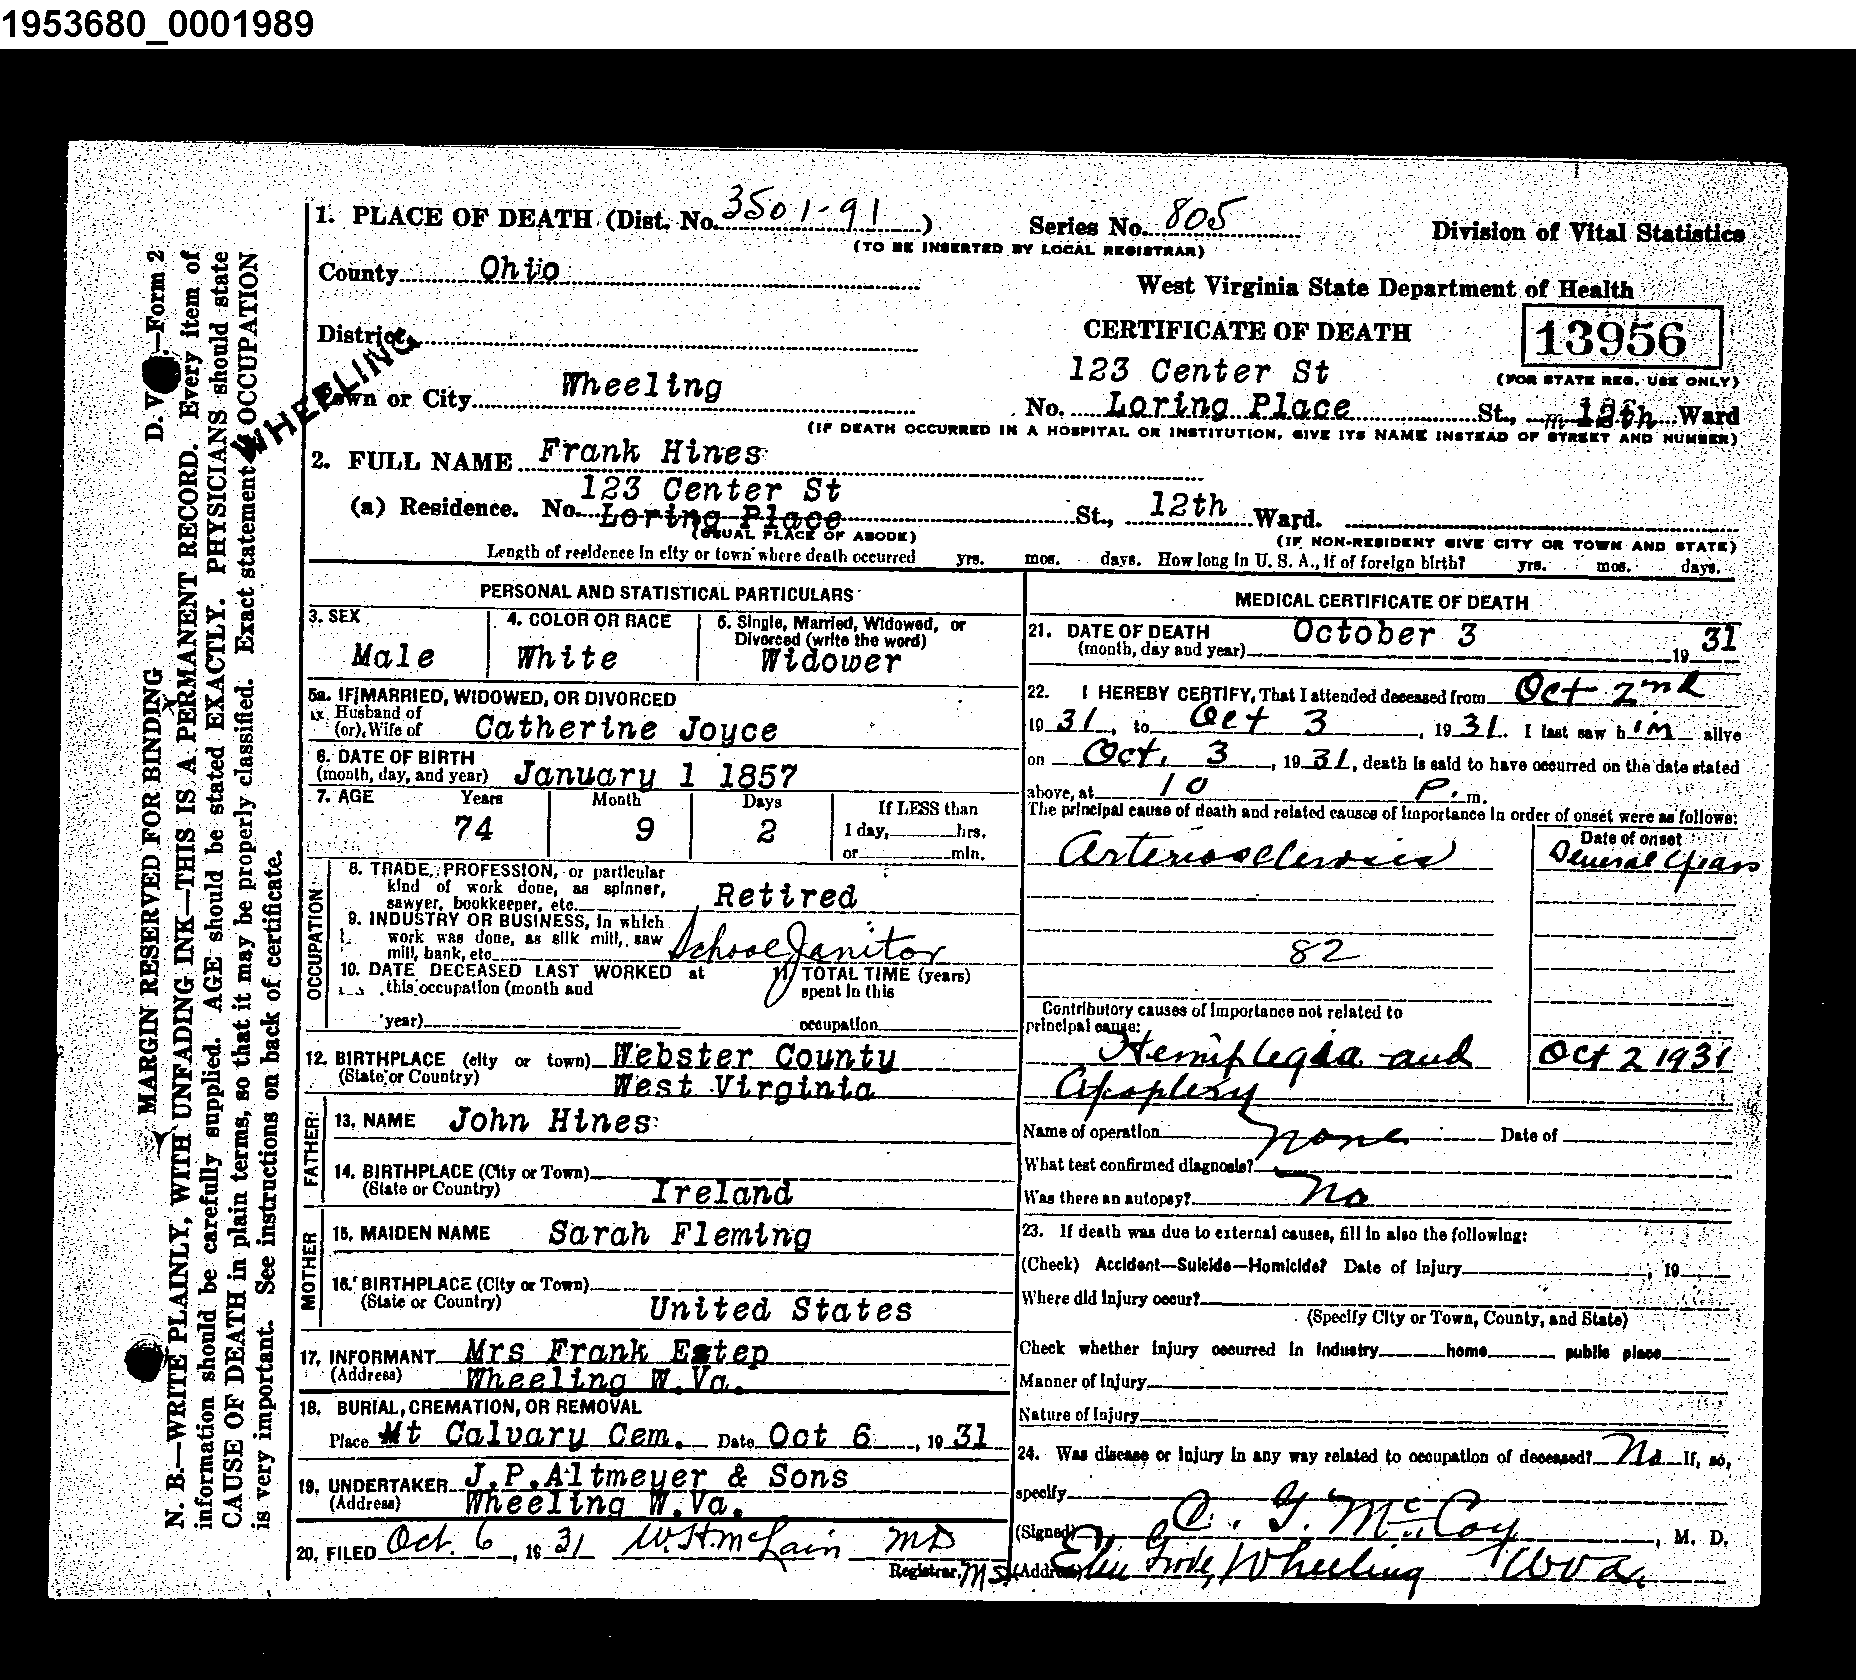 1953680_0001989
MARGIN RESERVED FOR BINDING D. V. —Form 2
N. B.—WRITE PLAINLY, WITH UNFADING INK—THIS IS A PERMANENT RECORD. Every item of
information should be carefully supplied. AGE should be stated EXACTLY. PHYSICIANS should state
CAUSE OF DEATH in plain terms, so that it may be properly classified. Exact statement of OCCUPATION
is very important. See instructions on back of certificate.
WHEELING
1. PLACE OF DEATH (Dist. No. 3501-91 ) Series No. 805 Division of Vital Statistics
(TO BE INSERTED BY LOCAL REGISTRAR)
County Ohio
West Virginia State Department of Health
District
CERTIFICATE OF DEATH 13956
(FOR STATE REG. USE ONLY)
123 Center St
Town or City Wheeling No. Loring Place St., 12th Ward
(IF DEATH OCCURRED IN A HOSPITAL OR INSTITUTION, GIVE ITS NAME INSTEAD OF STREET AND NUMBER)
2. FULL NAME Frank Hines
123 Center St
(a) Residence. No. Loring Place St., 12th Ward.
(USUAL PLACE OF ABODE) (IF NON-RESIDENT GIVE CITY OR TOWN AND STATE)
Length of residence in city or town where death occurred yrs. mos. days. How long in U. S. A., if of foreign birth? yrs. mos. days.
PERSONAL AND STATISTICAL PARTICULARS
3. SEX Male
4. COLOR OR RACE White
5. Single, Married, Widowed, or
Divorced (write the word)
Widower
5a. IF MARRIED, WIDOWED, OR DIVORCED
Husband of
(or) Wife of Catherine Joyce
6. DATE OF BIRTH
(month, day, and year) January 1 1857
7. AGE Years Month Days If LESS than
74 9 2 1 day, hrs.
or min.
OCCUPATION
8. TRADE, PROFESSION, or particular
kind of work done, as spinner,
sawyer, bookkeeper, etc. Retired
9. INDUSTRY OR BUSINESS, in which
work was done, as silk mill, saw
mill, bank, etc. School Janitor
10. DATE DECEASED LAST WORKED at
this occupation (month and
year)
11. TOTAL TIME (years)
spent in this
occupation
12. BIRTHPLACE (city or town) Webster County
(State or Country) West Virginia
FATHER
13. NAME John Hines
14. BIRTHPLACE (City or Town)
(State or Country) Ireland
MOTHER
15. MAIDEN NAME Sarah Fleming
16. BIRTHPLACE (City or Town)
(State or Country) United States
17. INFORMANT Mrs Frank Estep
(Address) Wheeling W.Va.
18. BURIAL, CREMATION, OR REMOVAL
Place Mt Calvary Cem. Date Oct 6 , 19 31
19. UNDERTAKER J.P.Altmeyer & Sons
(Address) Wheeling W.Va.
20. FILED Oct. 6 , 19 31 W.H.McLain MD
Registrar. MS
MEDICAL CERTIFICATE OF DEATH
21. DATE OF DEATH
(month, day and year) October 3 19 31
22. I HEREBY CERTIFY, That I attended deceased from Oct 2nd
19 31, to Oct 3 , 19 31. I last saw him alive
on Oct. 3 , 19 31, death is said to have occurred on the date stated
above, at 10 P. m.
The principal cause of death and related causes of importance in order of onset were as follows:
Date of onset
Arteriosclerosis
82
Contributory causes of importance not related to
principal cause:
Hemiplegia and Oct 2 1931
Apoplexy
Name of operation none Date of
What test confirmed diagnosis?
Was there an autopsy? No
23. If death was due to external causes, fill in also the following:
(Check) Accident—Suicide—Homicide? Date of Injury , 19
Where did injury occur?
(Specify City or Town, County, and State)
Check whether injury occurred in industry home public place
Manner of Injury
Nature of Injury
24. Was disease or injury in any way related to occupation of deceased? No If, so,
specify
(Signed) C. G. McCoy , M. D.
(Address) Elm Grove, Wheeling W Va.